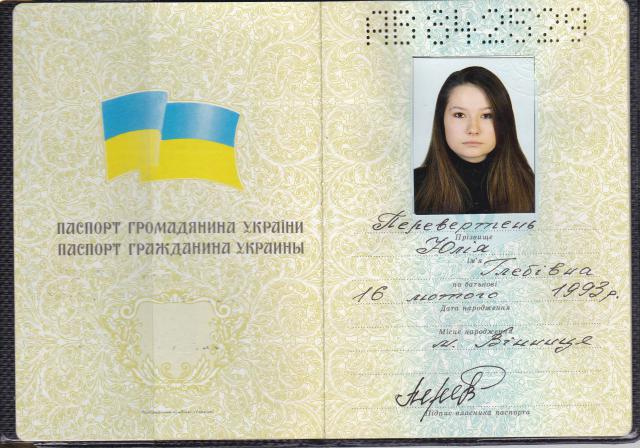 ПАСПОРТ ГРОМАДЯНИНА УКРАЇНИ
ПАСПОРТ ГРАЖДАНИНА УКРАИНЫ
АВ 842529
Перевертень
Прізвище
Юлія
Ім'я
Глебівна
по батькові
16 лютого 1993 р.
Дата народження
Місце народження
м. Вінниця
Підпис власника паспорта